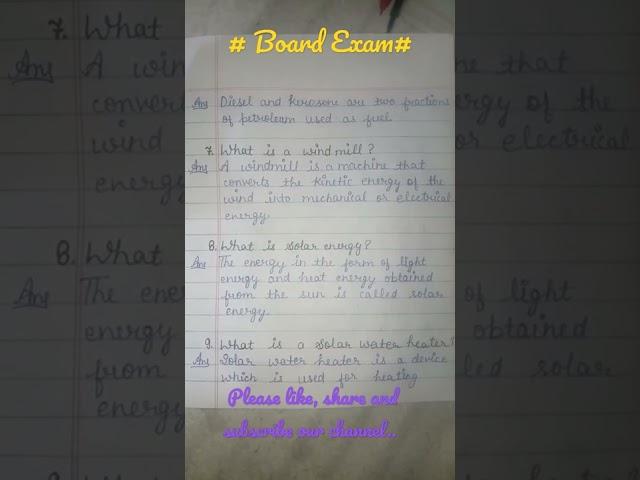 # Board Exam#
Ans Diesel and kerosene are two fractions
of petroleum used as fuel.
7. What is a wind mill?
Ans A windmill is a machine that
converts the kinetic energy of the
wind into mechanical or electrical
energy.
8. What is solar energy?
Ans The energy in the form of light
energy and heat energy obtained
from the sun is called solar
energy.
9. What is a solar water heater?
Ans Solar water heater is a device
which is used for heating
Please like, share and
subscribe our channel..